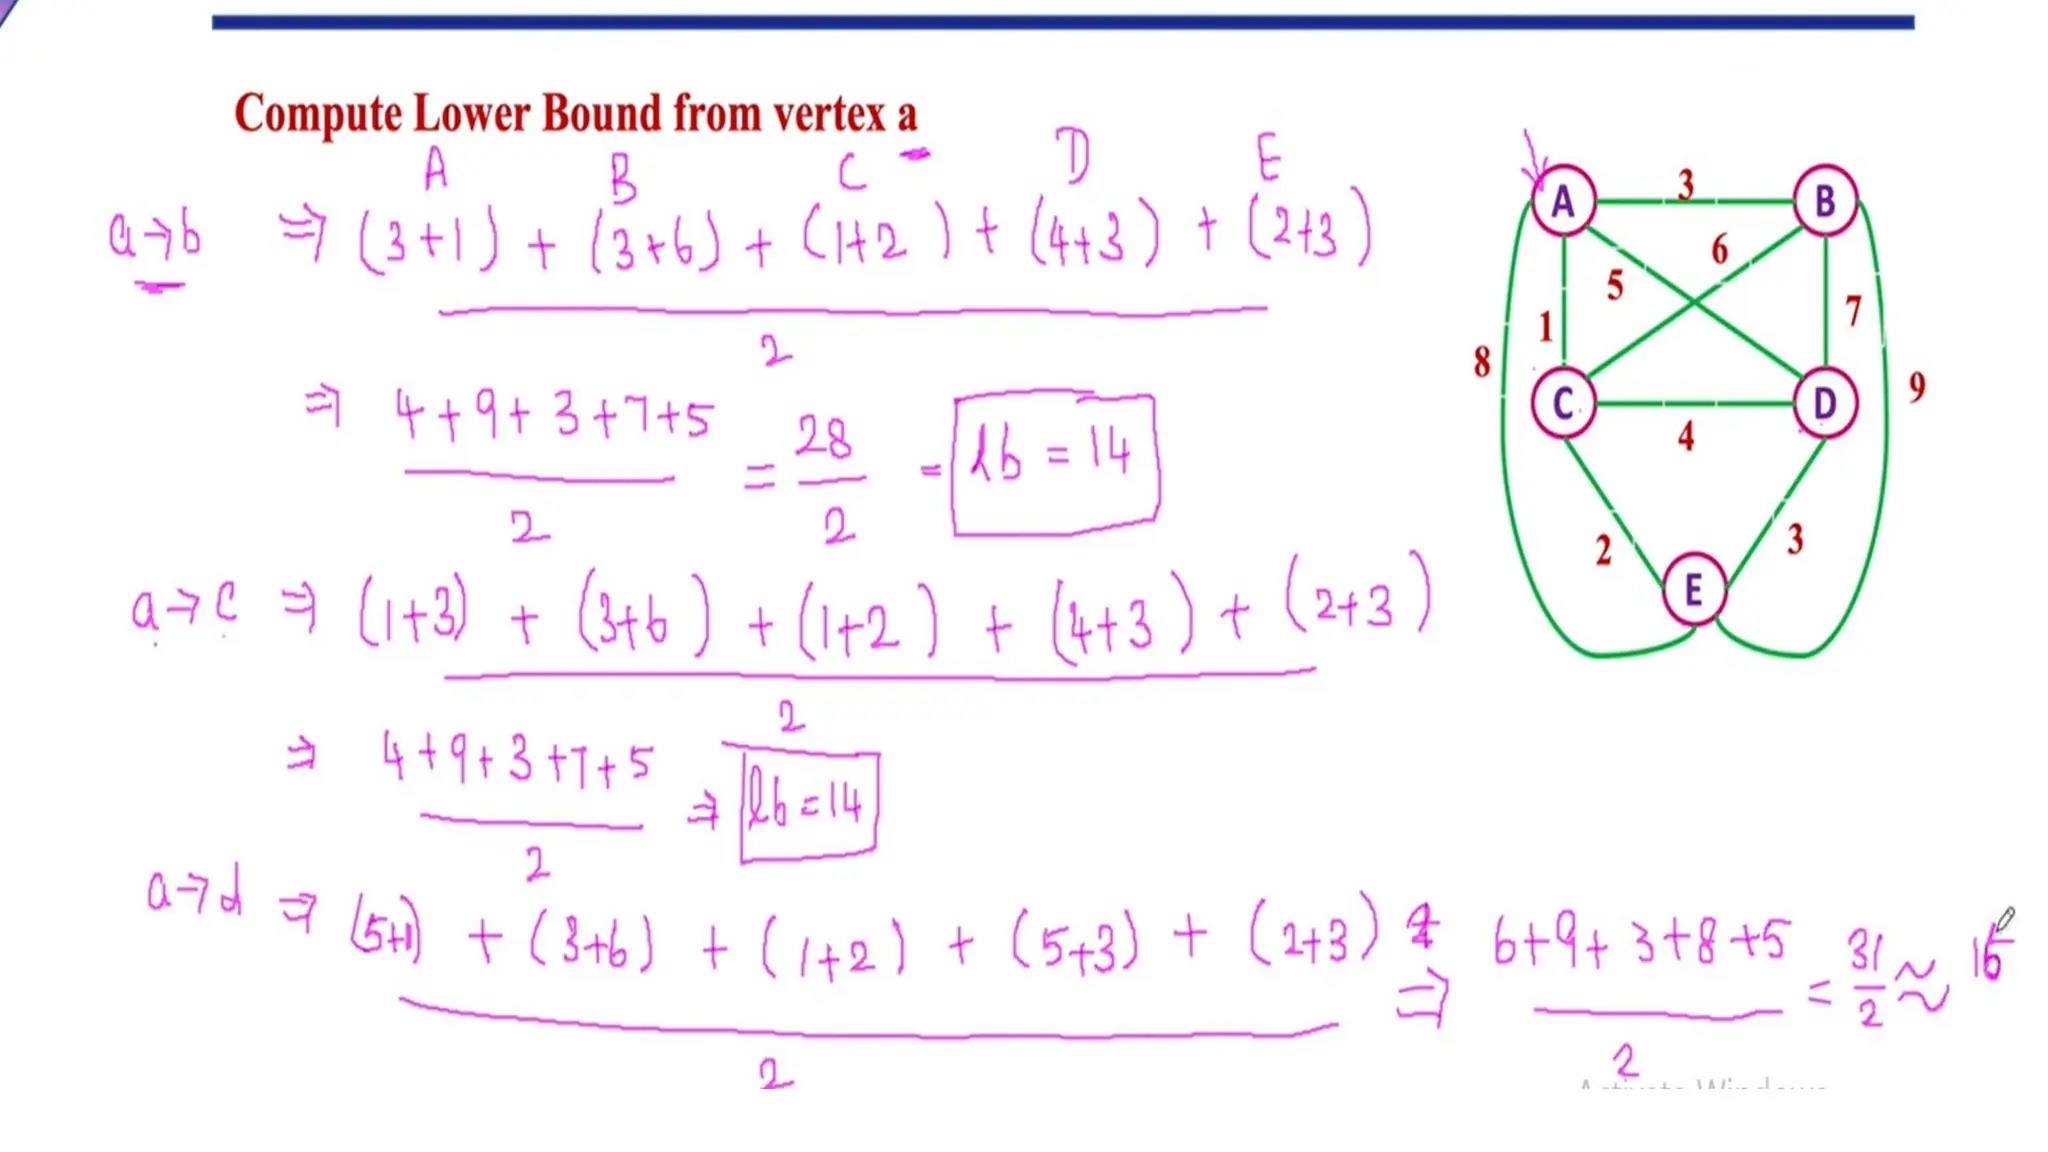 Compute Lower Bound from vertex a
A B C D E
a→b ⇒ (3+1) + (3+6) + (1+2) + (4+3) + (2+3)
2
⇒ 4+9+3+7+5 = 28 = lb = 14
2 2
a→c ⇒ (1+3) + (3+6) + (1+2) + (4+3) + (2+3)
2
⇒ 4+9+3+7+5 ⇒ lb=14
2
a→d ⇒ (5+1) + (3+6) + (1+2) + (5+3) + (2+3) ⇒ 6+9+3+8+5 = 31/2 ≈ 16
2 2
A 3 B
6
5
1 7
8 9
C 4 D
2 3
E